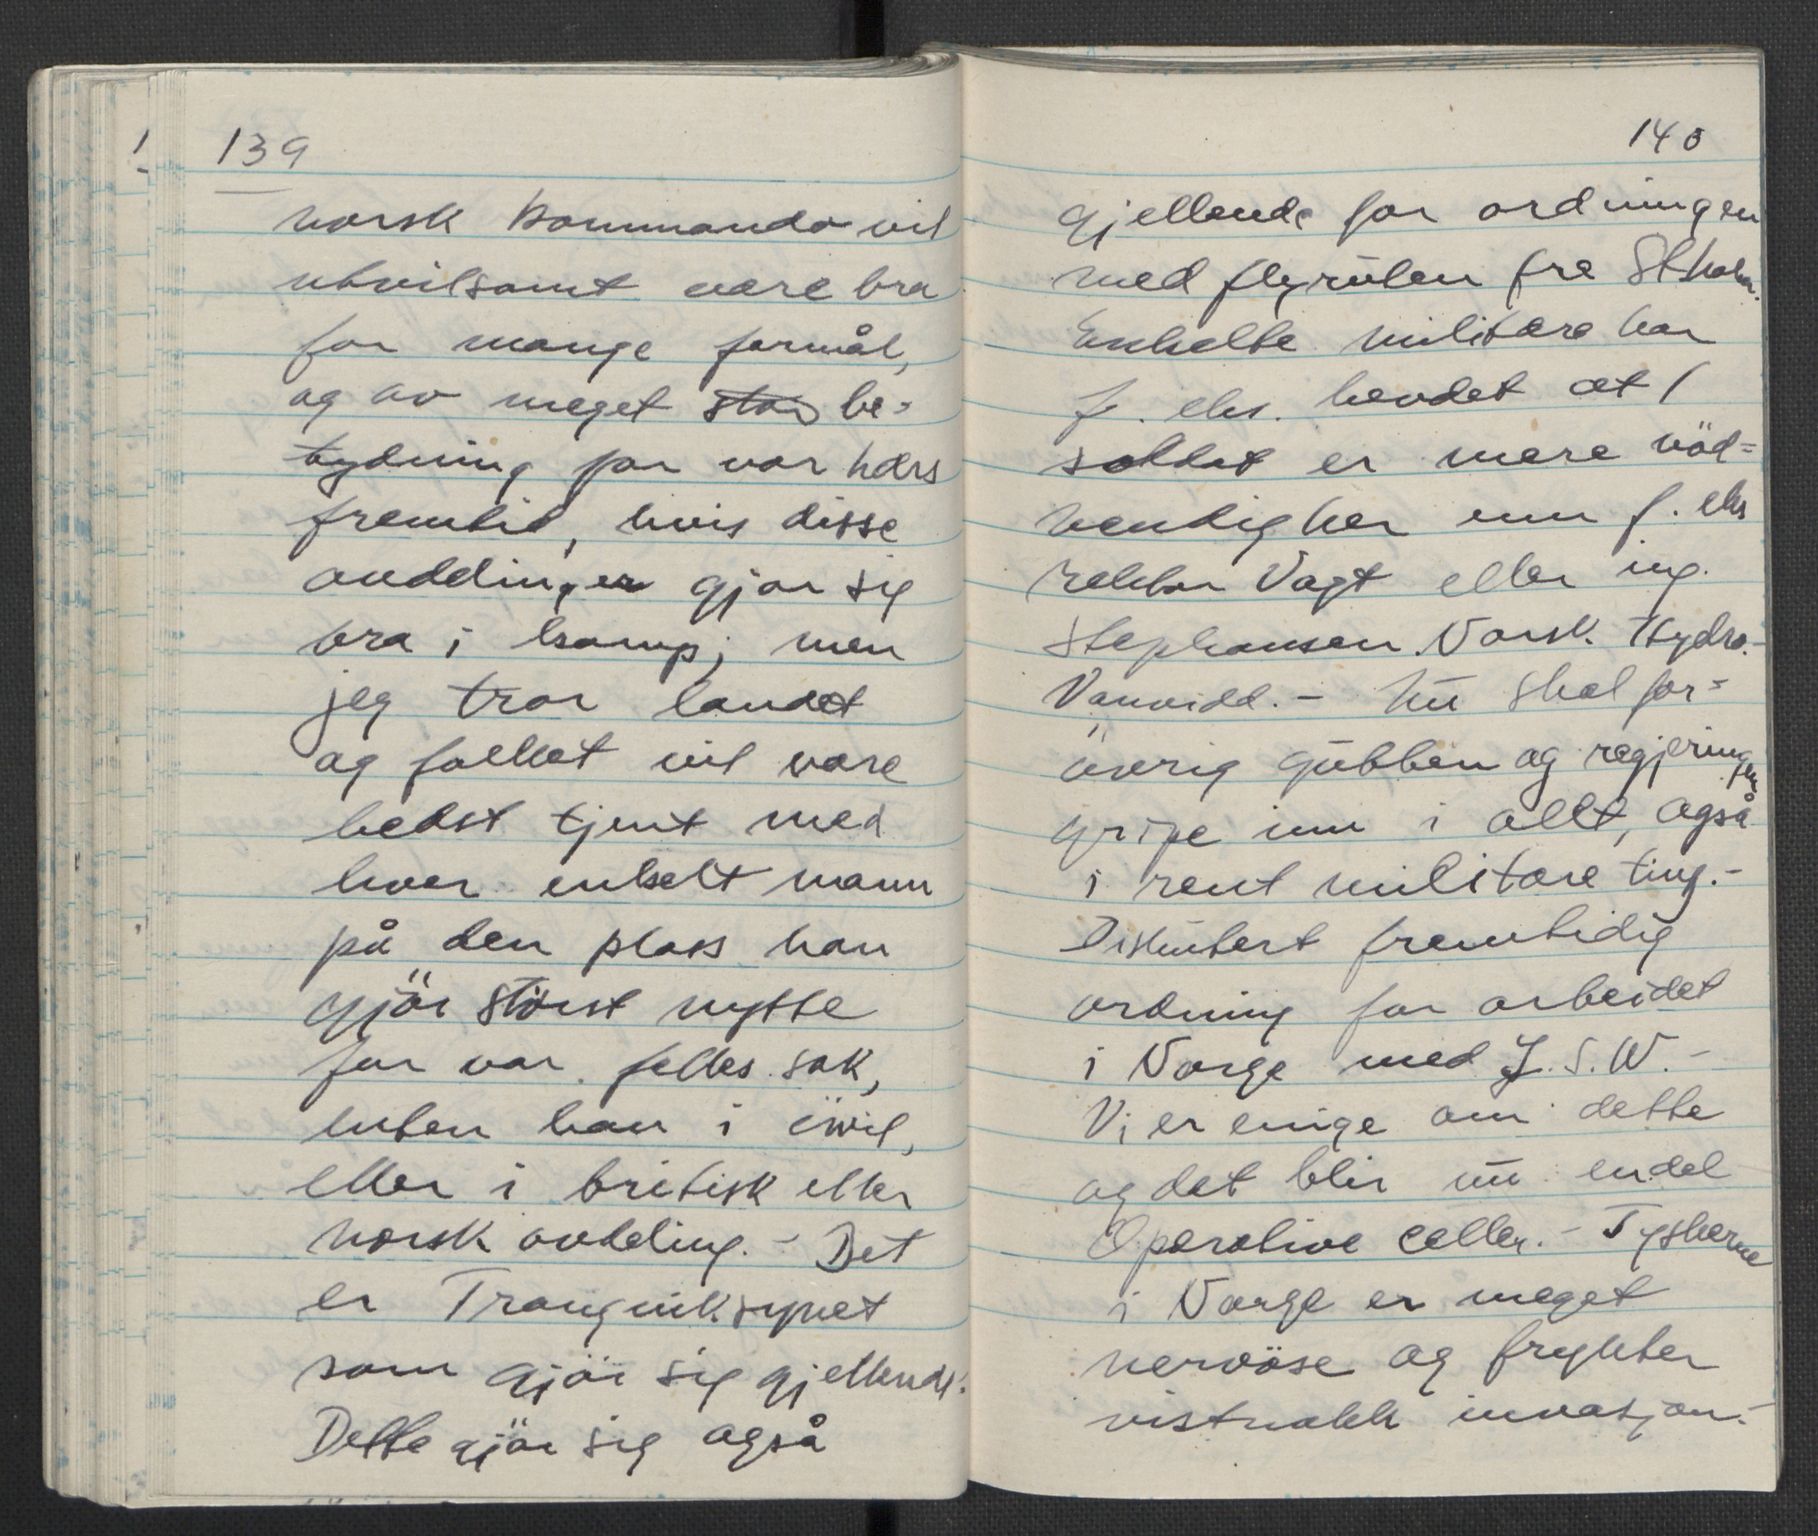 139
norsk kommando vil
utvilsomt være bra
for mange formål,
og av meget stor be-
tydning for vor hærs
fremtid, hvis disse
avddinger gjør sig
bra i kamp; men
jeg tror landet
og folket vil være
bedst tjent med
hver enkelt mann
på den plass han
gjör störst nytte
for vor felles sak,
enten han i civil,
eller i britisk eller
norsk avdeling. - Det
er Trangviksynet
som gjör sig gjellende.
Dette gjör sig også
140
gjellende for ordningen
med flyruten fra Stholm.
Enkelte militære har
f. eks. hevdet at 1
soldat er mere nöd-
vendig her enn f. eks
rektor Vogt eller ing.
Stephansen Norsk Hydro.-
Vanvidd. - Nu skal for-
övrig gubben og regjeringen
gripe inn i allt, også
i rent militære ting.-
Diskutert fremtidig
ordning for arbeidet
i Norge med J.S.W. -
Vi er enige om dette
og det blir nu endel
Operative celler. - Tyskerne
i Norge er meget
nervöse og frykter
vistnokk invasjon.-